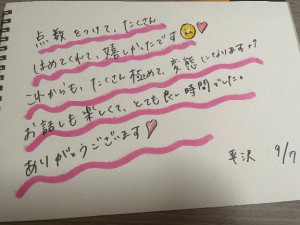 点数をつけて、たくさん
ほめてくれて、嬉しかったです
これからも、たくさん極めて、変態になりますっ♡
お話しも楽しくて、とても良い時間でした。
ありがとうございます
平沢 9/7